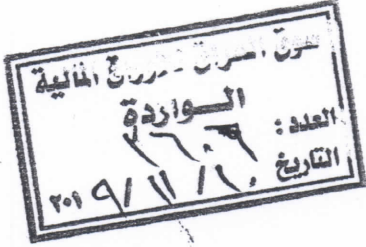 سوق العراق للاوراق المالية
الـواردة
العدد : ٢٦٠٩
التاريخ ١٠ / ١١ / ٢٠١٩